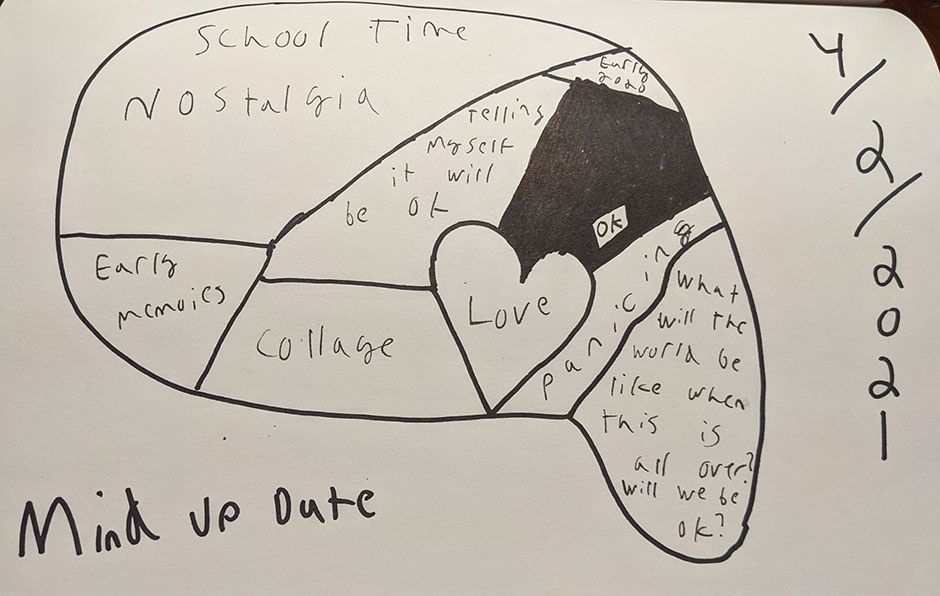 School Time
Nostalgia
Early
2020
Telling
Myself
it will
be ok
ok
Early
memoies
Collage
Love
panicing
What
will the
world be
like when
this is
all over?
will we be
ok?
4/2/2021
Mind up Date